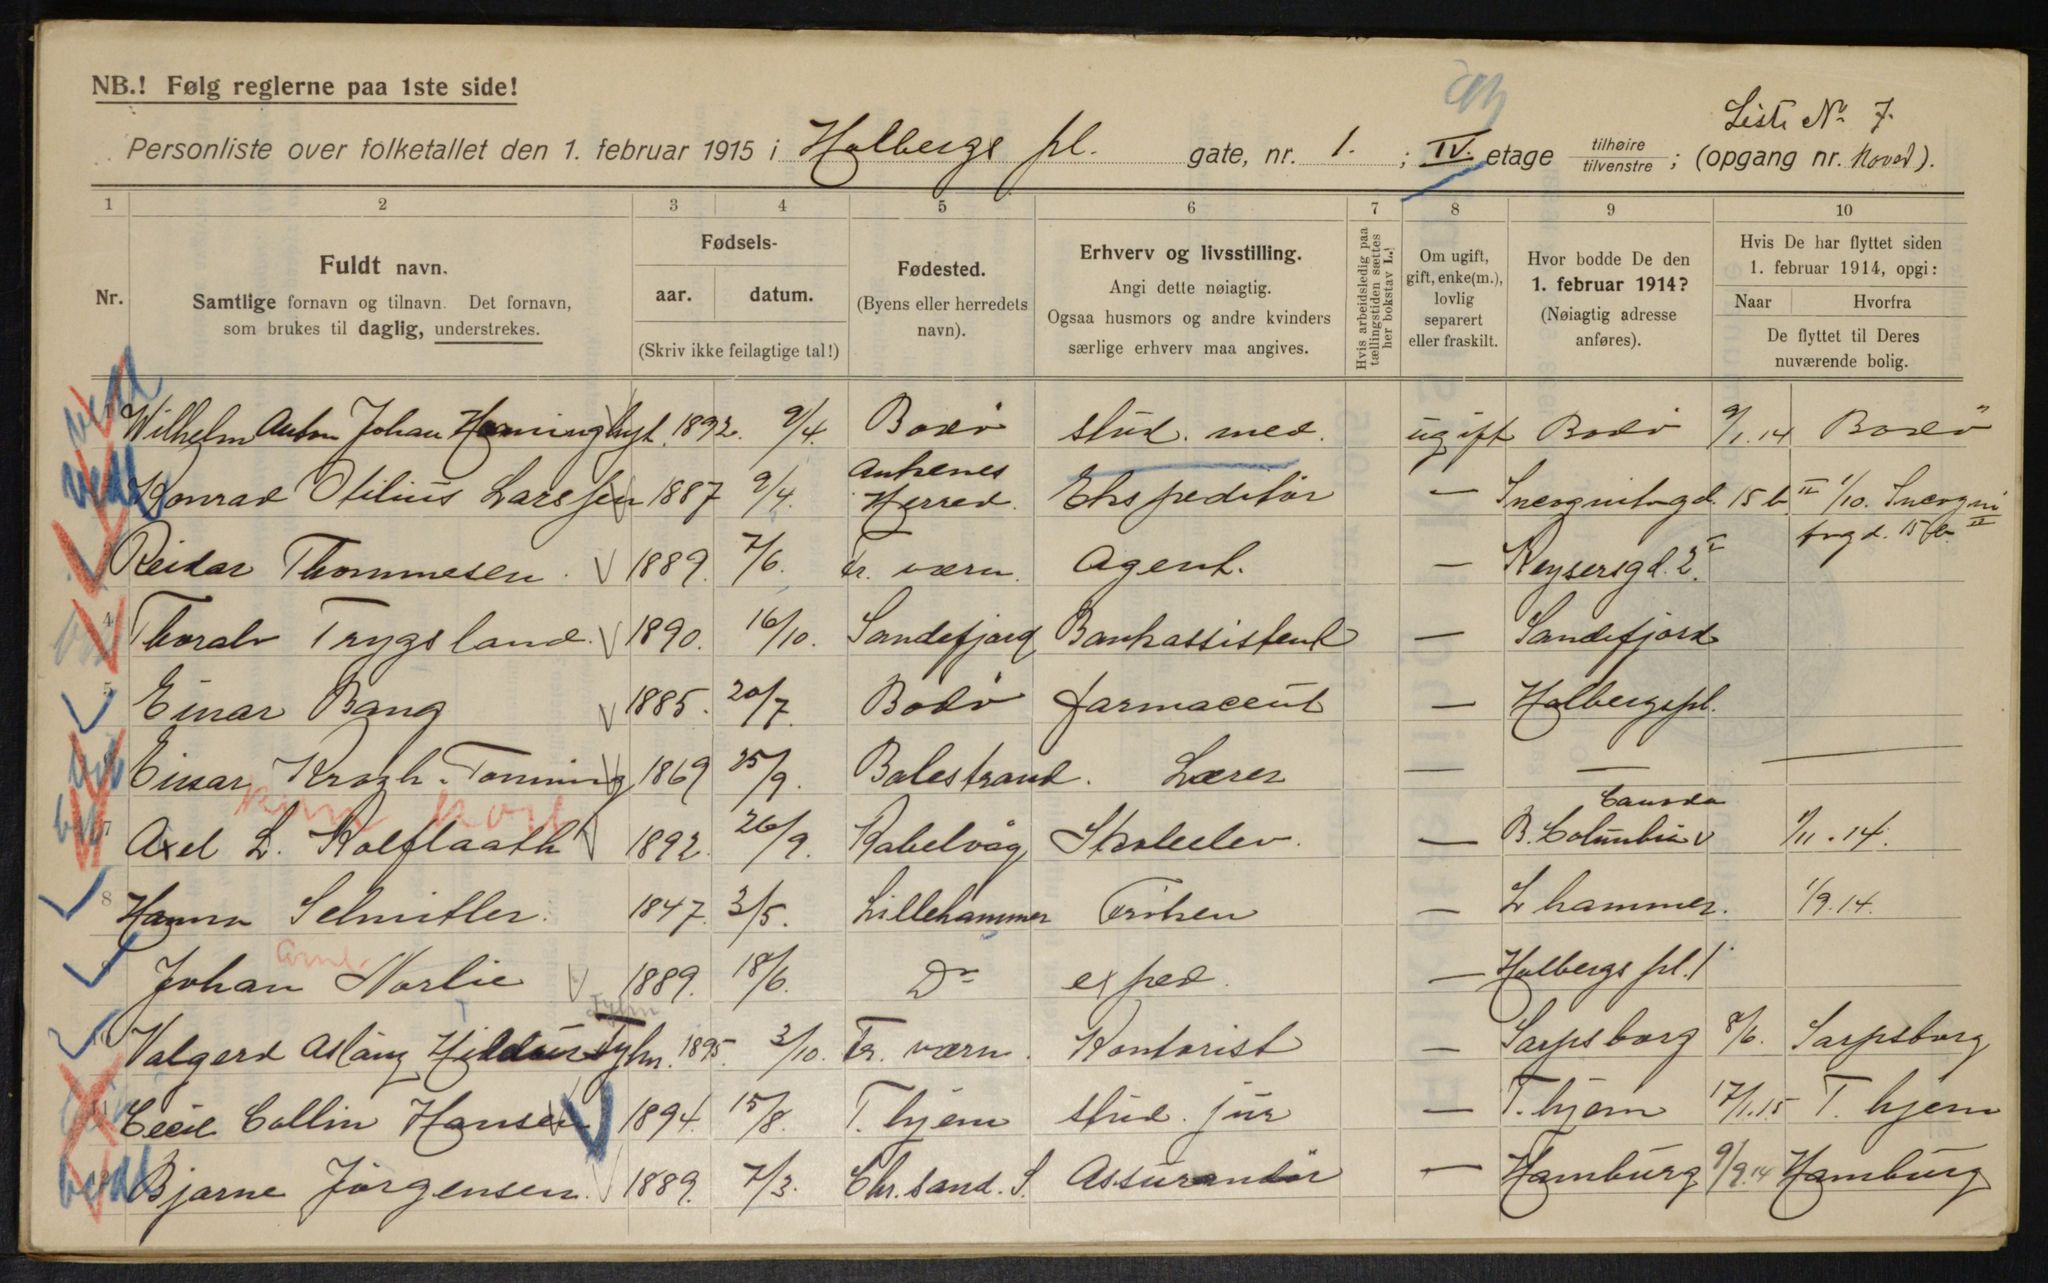 NB.! Følg reglerne paa 1ste side!
Liste No 7.
Personliste over folketallet den 1. februar 1915 i Holbergs pl. gate, nr. 1. ; IV. etage tilhøire tilvenstre ; (opgang nr. Hoved).
1 2 3 4 5 6 7 8 9 10
Nr.
Fuldt navn.
Samtlige fornavn og tilnavn. Det fornavn,
som brukes til daglig, understrekes.
Fødsels-
aar. datum.
(Skriv ikke feilagtige tal!)
Fødested.
(Byens eller herredets
navn).
Erhverv og livsstilling.
Angi dette nøiagtig.
Ogsaa husmors og andre kvinders
særlige erhverv maa angives.
Hvis arbeidsledig paa
tællingstiden sættes
her bokstav L.!
Om ugift,
gift, enke(m.),
lovlig
separert
eller fraskilt.
Hvor bodde De den
1. februar 1914?
(Nøiagtig adresse
anføres).
Hvis De har flyttet siden
1. februar 1914, opgi:
Naar Hvorfra
De flyttet til Deres
nuværende bolig.
Wilhelm Anton Johan 1892. 9/4 Bodö stud. med. ugift Bodö 9/1.14 Bodö
Konrad Otilius Larssen 1887 9/4. Ankenes Herred. Ekspeditör — 15 b II 1/10. 15 b. II
Reidar Thommesen. 1889. 7/6. Tr. værn. Agent. — Keysersgd. 2. I
4 Thoralv Trygsland. 1890. 16/10. Sandefjord Bankassistent — Sandefjord
5 Einar Bang 1885. 20/7. Bodö farmaceut — Holbergspl.
Einar Krogh-Tonning 1869 25/9. Balestrand. Lærer — — —
7 Axel L. Kolflaath 1892. 26/9. Kabelvåg Skoleelev. — B. Columbia Canada 1/11.14.
8 Hanna Schnitler. 1847. 3/5. Lillehammer Fröken — L hammer. 1/9.14.
Johan Norlie 1889. 18/6. Do exped. — Holbergs pl. 1
10 Valgerd Aslaug Hildur Tyhn. 1895. 3/10. Tr. værn. Kontorist — Sarpsborg 8/6. Sarpsborg
11 Cecil Collin Hansen 1894. 15/8. T. hjem stud. jur — T. hjem 17/1.15 T. hjem
Bjarne Jörgensen. 1889. 7/3. Chr. sand. S. Assurandör — Hamburg 9/9.14 Hamburg